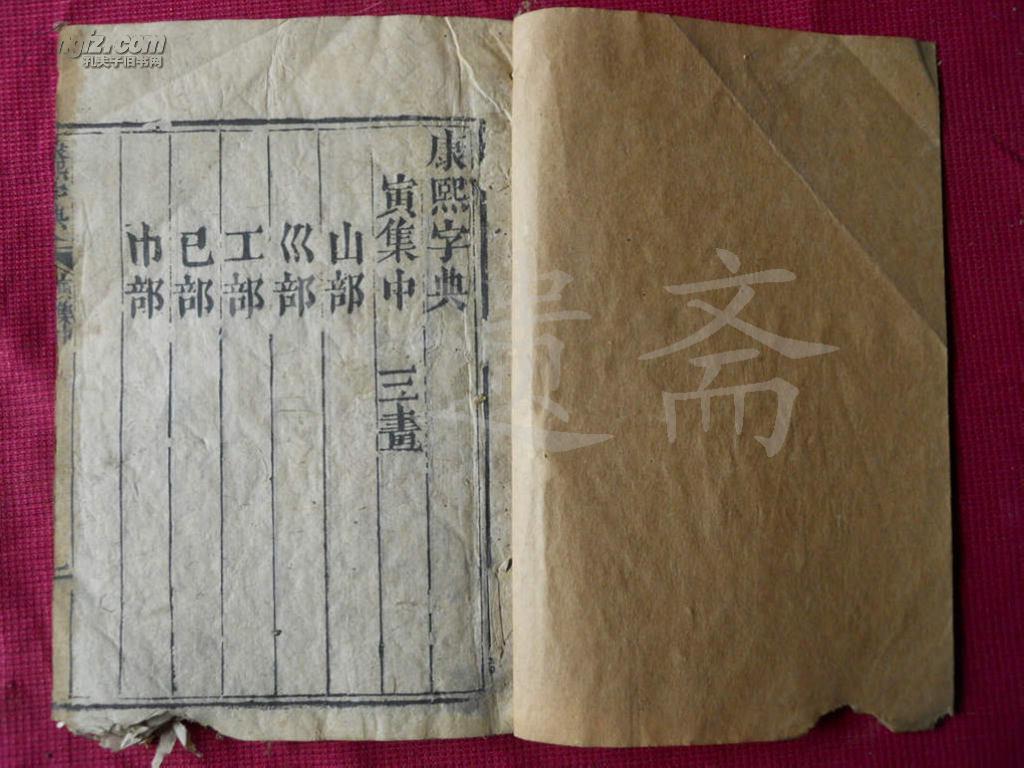 康熙字典
寅集中 三畫
山部
巛部
工部
已部
巾部
孔夫子旧书网
斋